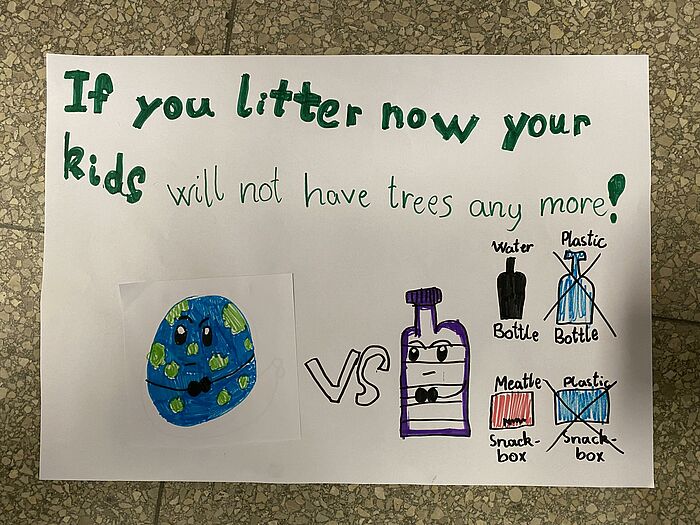 If you litter now your
kids will not have trees any more!
Water
Bottle
Plastic
Bottle
VS
Meatle
Snack-
box
Plastic
Snack-
box